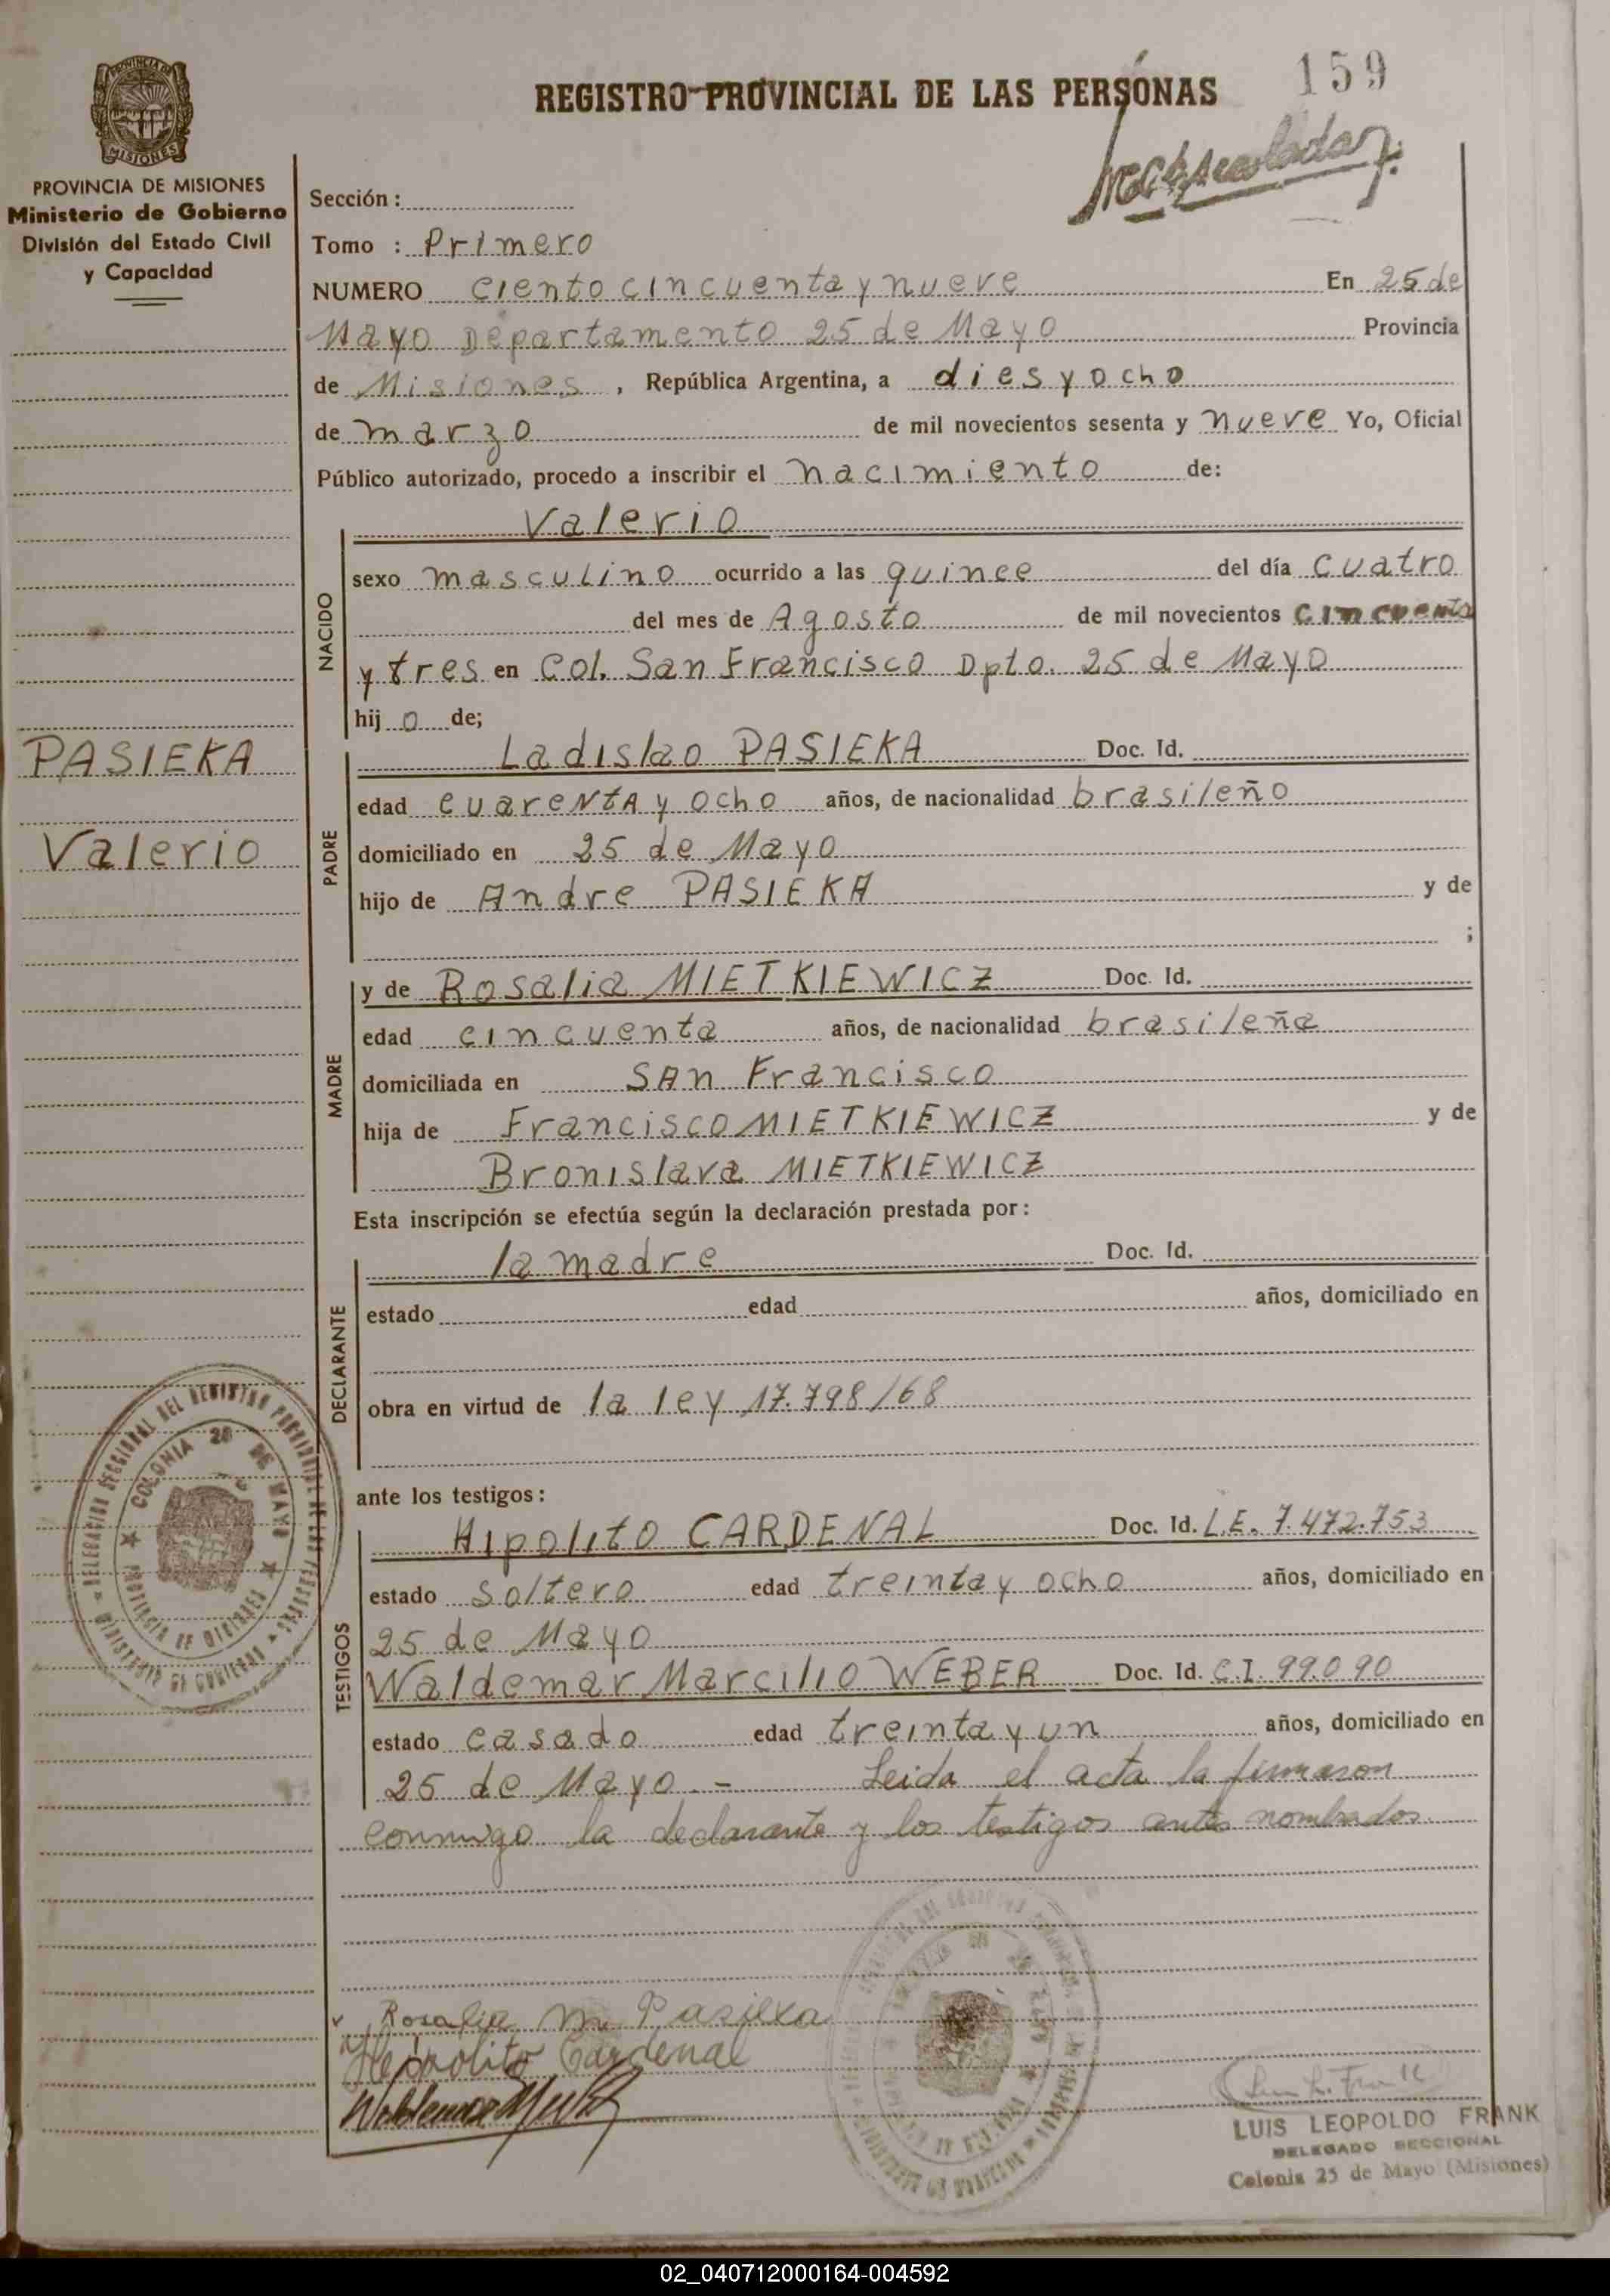 159
REGISTRO PROVINCIAL DE LAS PERSONAS
PROVINCIA DE MISIONES
Ministerio de Gobierno
División del Estado Civil
y Capacidad
Sección :
Tomo : Primero
NUMERO Ciento cincuenta y nueve En 25 de
Mayo Departamento 25 de Mayo Provincia
de Misiones, República Argentina, a dies y ocho
de marzo de mil novecientos sesenta y nueve Yo, Oficial
Público autorizado, procedo a inscribir el nacimiento de:
NACIDO
Valerio
sexo masculino ocurrido a las quince del día cuatro
del mes de Agosto de mil novecientos cincuenta
y tres en Col. San Francisco Dpto. 25 de Mayo
hij o de;
PASIEKA
Valerio
PADRE
Ladislao PASIEKA Doc. Id.
edad cuarenta y ocho años, de nacionalidad brasileño
domiciliado en 25 de Mayo
hijo de Andre PASIEKA y de
;
MADRE
y de Rosalia MIETKIEWICZ Doc. Id.
edad cincuenta años, de nacionalidad brasileña
domiciliada en SAn Francisco
hija de Francisco MIETKIEWICZ y de
Bronislava MIETKIEWICZ
Esta inscripción se efectúa según la declaración prestada por:
DECLARANTE
la madre Doc. Id.
estado edad años, domiciliado en
obra en virtud de la ley 17.798/68
ante los testigos:
TESTIGOS
Hipolito CARDENAL Doc. Id. L.E. 7.472.753
estado soltero edad treinta y ocho años, domiciliado en
25 de Mayo
Waldemar Marcilio WEBER Doc. Id. C.I. 99.090
estado casado edad treinta y un años, domiciliado en
25 de Mayo.- Leida el acta la firmaron
conmigo la declarante y los testigos antes nombrados.
DELEGACION SECCIONAL DEL REGISTRO PROVINCIAL DE LAS PERSONAS
COLONIA 25 DE MAYO
PROVINCIA DE MISIONES
MINISTERIO DE GOBIERNO
Rosalia M. Pasieka
Hipolito Cardenal
LUIS LEOPOLDO FRANK
DELEGADO SECCIONAL
Colonia 25 de Mayo (Misiones)
02_040712000164-004592